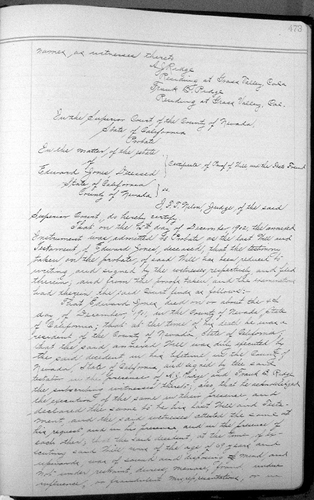 473
names, as witnesses thereto
Residing at Grass Valley, Cal.
Residing at Grass Valley, Cal.
In the Superior Court of the County of Nevada
State of California
Probate
In the matter of the estate
of
Edward Jones Deceased
Certificate of Proof of Will and the Facts Found
State of California
County of Nevada } ss
Judge of the said
Superior Court, do hereby certify
That on the day of December 1902, the annexed
Instrument was admitted to Probate as the last Will and
Testament of Edward Jones, deceased, that the testimony
taken on the probate of said Will has been reduced to
writing, and signed by the witnesses, respectively, and filed
therein; and from the proofs taken and the examination
had therein, the said Court finds as follows:-
That Edward Jones died on or about the
day of December, in the County of Nevada, State
of California; that at the time of his death he was a
resident of the County of Nevada, State of California;
that the said annexed Will was duly executed by
the said decedent in his lifetime in the County of
Nevada, State of California, and signed by the said
testator in the presence of and Frank
the subscribing witnesses thereto; also that he acknowledged
the execution of the same in their presence and
declared the same to be his last Will and Testa-
ment, and the said witnesses attested the same at
his request and in his presence, and in the presence of
each other; that the said decedent at the time of
said Will was of the age of years and
upwards, was of sound and disposing mind and
not under restraint, menace, fraud, undue
influence, or fraudulent misrepresentation, or in